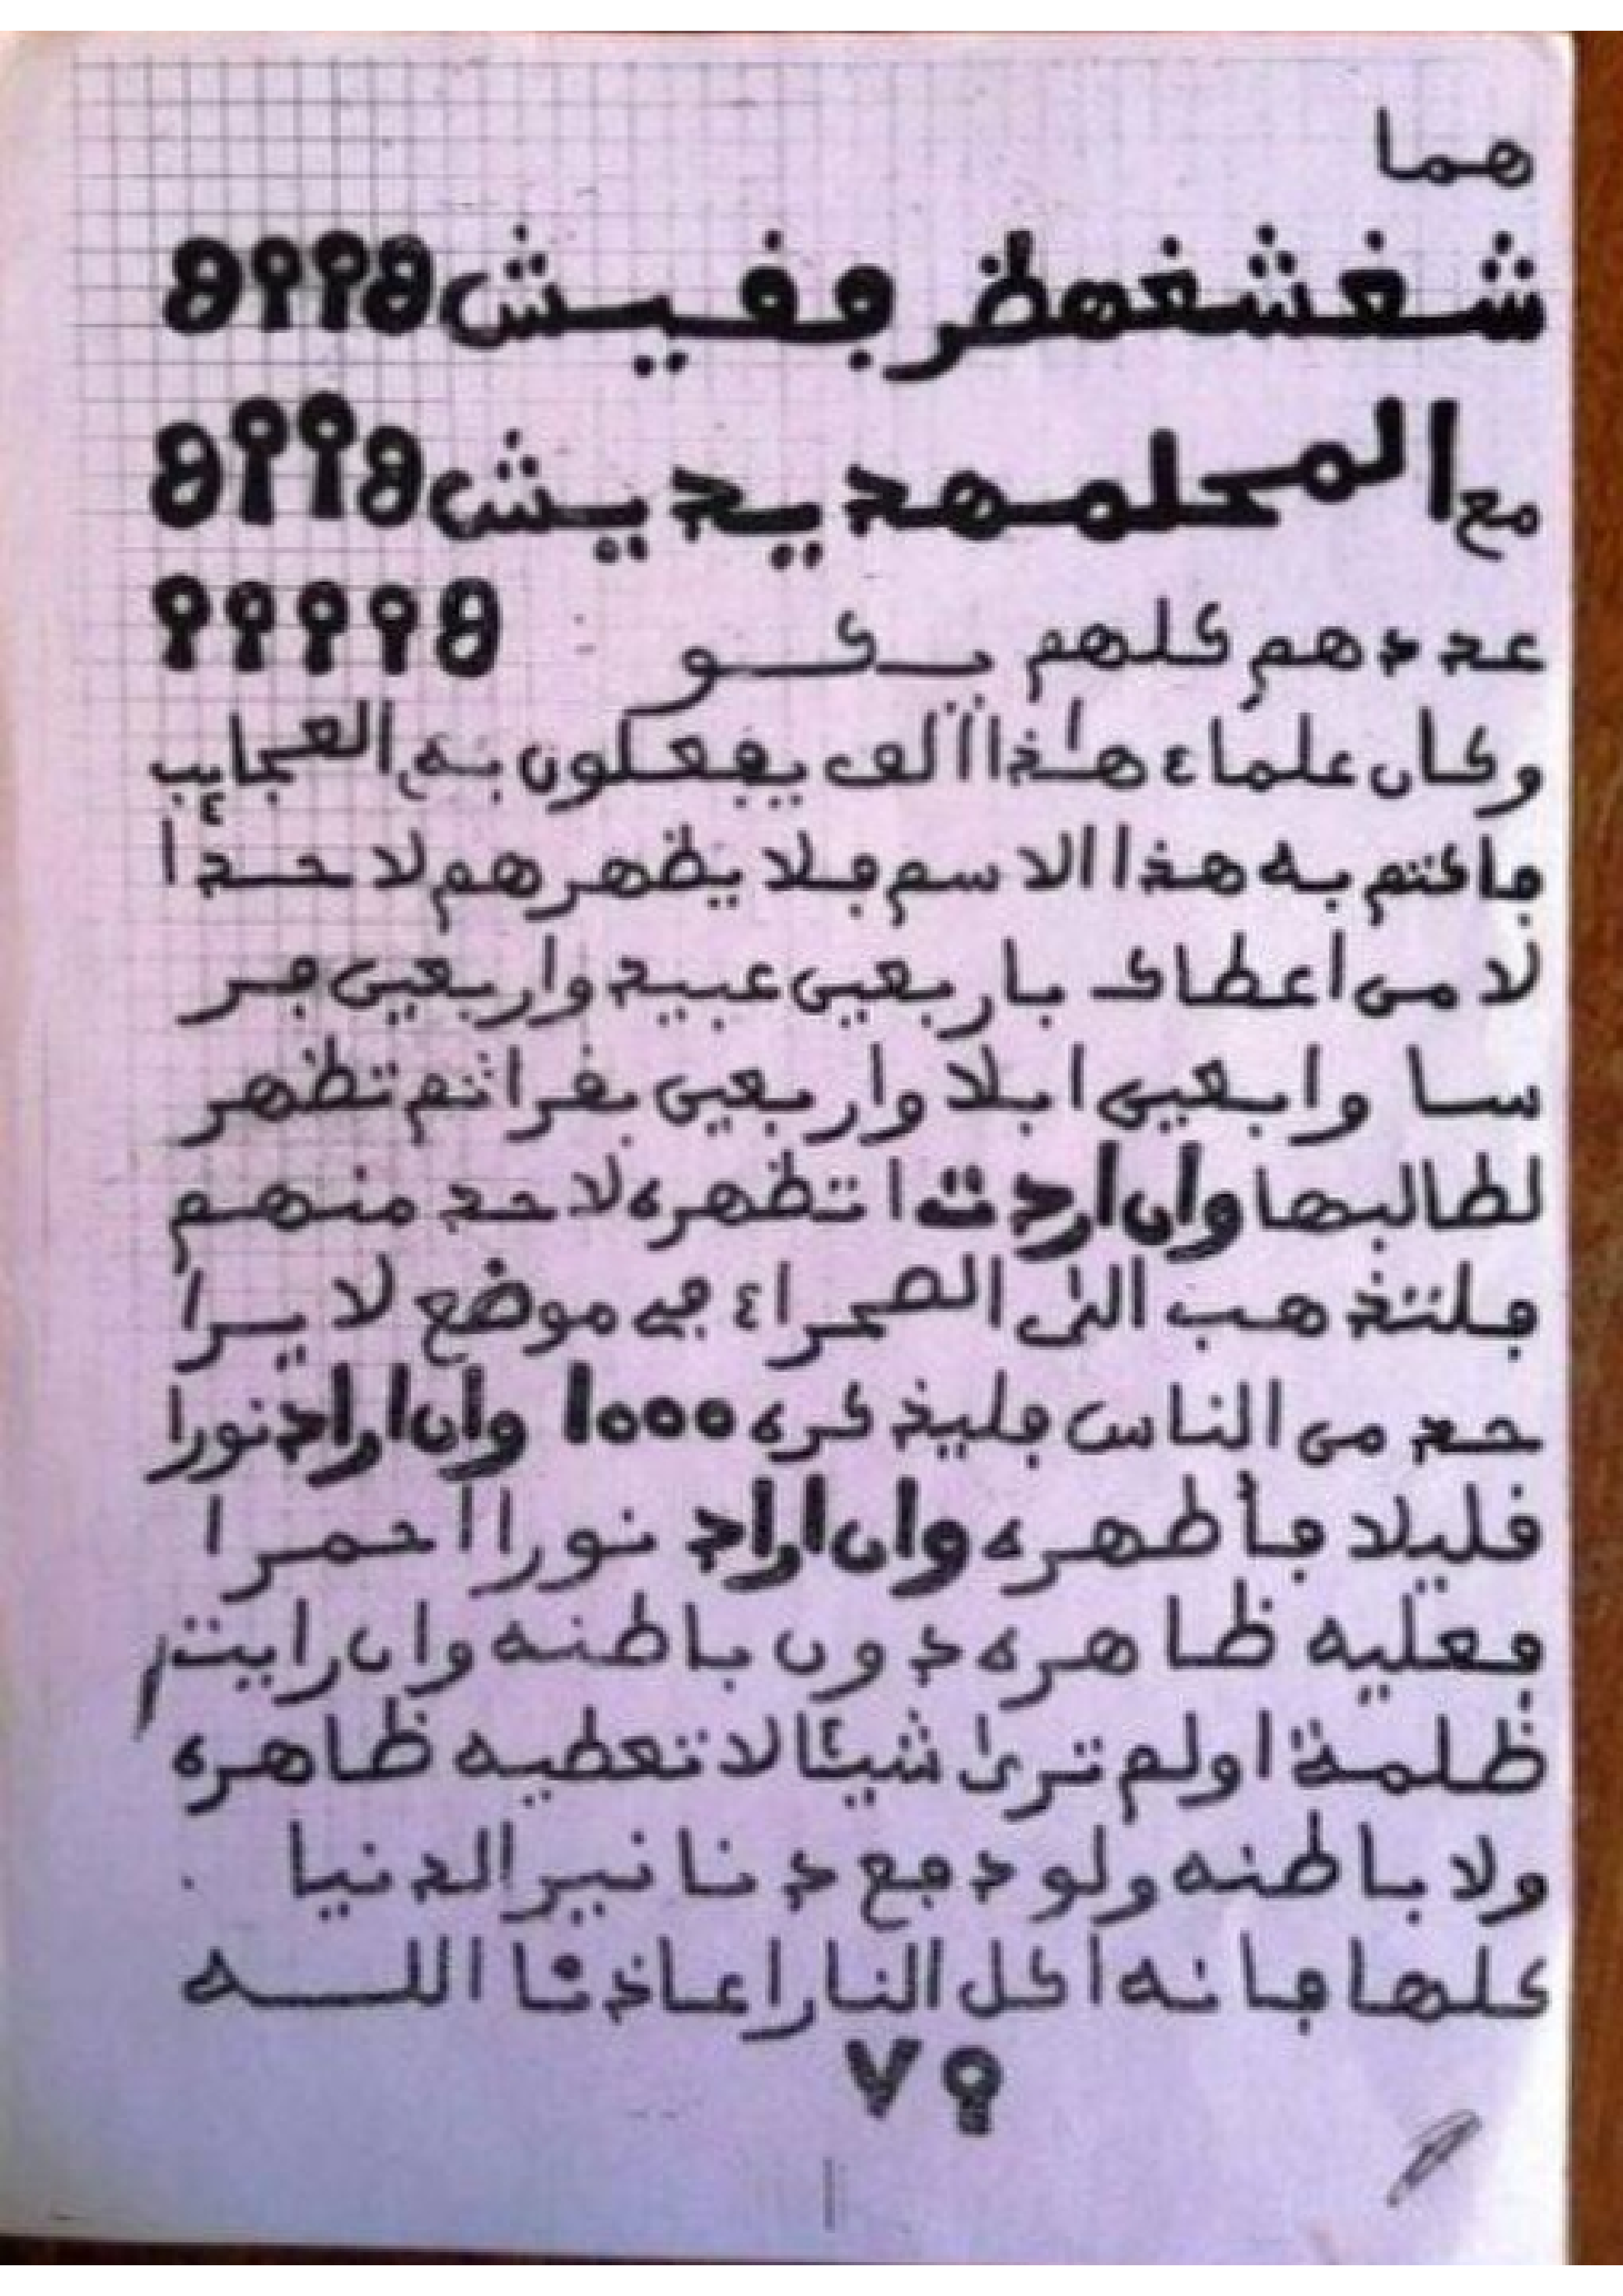 هما
شغشغهظر ففيش ٩٩٩٩
مع المحلمهد يديش ٩٩٩٩
عددهم كلهم بكو ٩٩٩٩٩
وكان علماء هاذا ألف يفعلون به العجايب
فاكتم به هذا الاسم فلا يظهرهم لا حدا
لا من اعطاك باربعين عبيد واربعين فر
سا وابعين ابلا واربعين بقرا تم تظهر
لطالبها وان اردت ا تظهره لا حد منهم
فلتذهب الى الصحراء في موضع لا يرا
حد من الناس فليذكره 1000 وان اراد نورا
قليلا فأظهره وان اراد نورا أحمرا
فعليه ظاهره دون باطنه وان رايت
ظلمة اولم ترى شيئا لا تعطيه ظاهره
ولا باطنه ولو دفع دنانير الدنيا
كلها فانه أكل النار اعاذنا اللــه